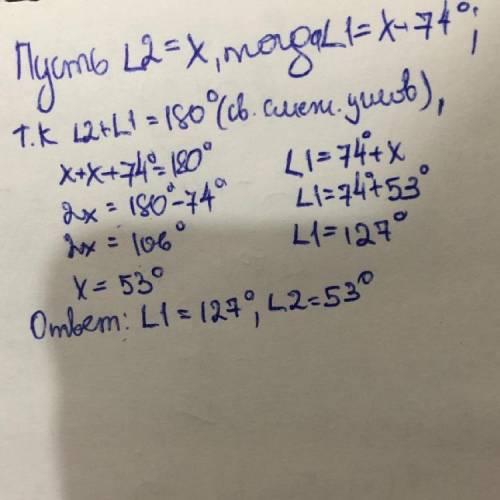 Пусть ∠2 = x, тогда ∠1 = x + 74°;
т.к ∠2+∠1 = 180° (св. смеж. углов),
x+x+74°=180°
2x = 180°-74°
2x = 106°
x = 53°
∠1 = 74°+x
∠1 = 74°+53°
∠1 = 127°
Ответ: ∠1 = 127°, ∠2 = 53°